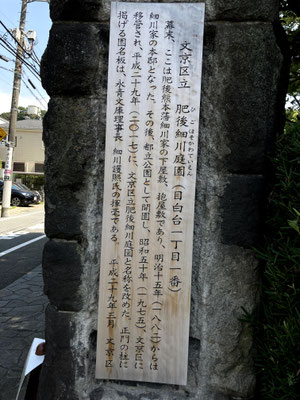 文京区立 肥後細川庭園(目白台一丁目一番)
ひごほそかわていえん
幕末、ここは肥後熊本藩細川家の下屋敷、抱屋敷であり、明治十五年(一八八二)からは
細川家の本邸となった。その後、都立公園として開園し、昭和五十年(一九七五)、文京区に
移管され、平成二十九年(二〇一七)に、文京区立肥後細川庭園と名称を改めた。正門の柱に
掲げる園名板は、永青文庫理事長 細川護熙氏の揮毫である。
平成二十九年三月 文京区